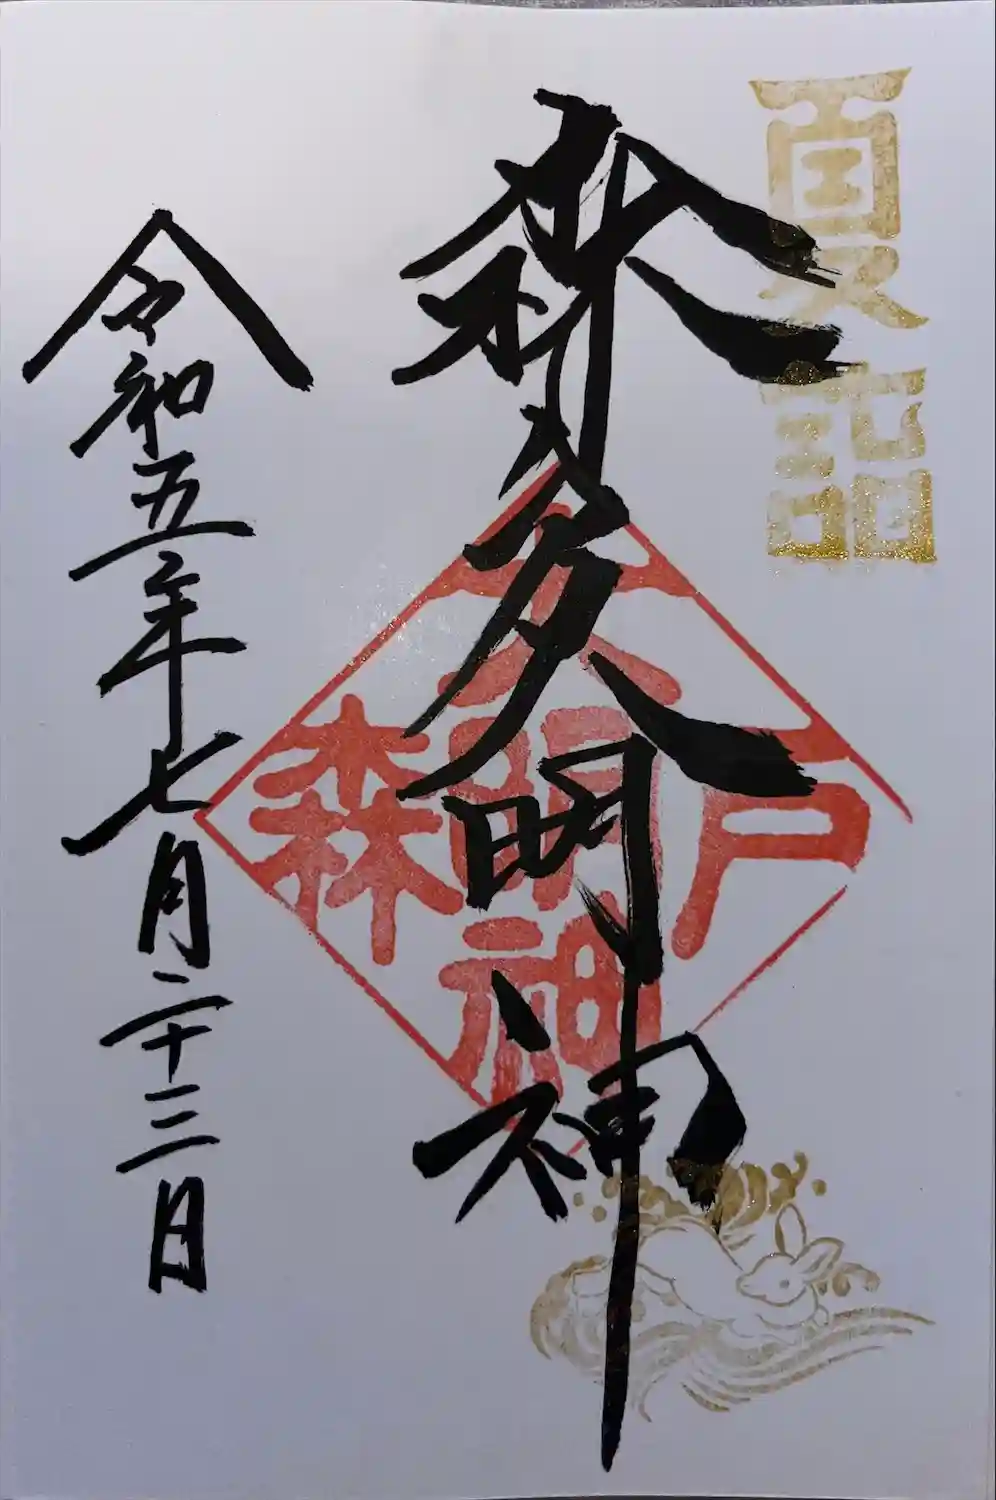 夏詣
森戸大明神
森戸
大明神
令和五年七月二十三日